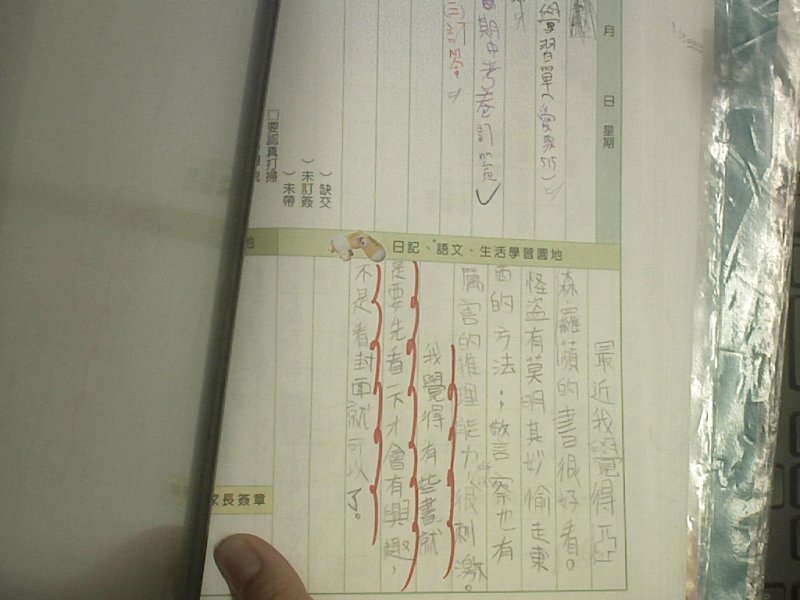 月 日 星期
學習單
期中考卷訂簽
訂簽
)缺交
)未訂簽
)未帶
□要認真打掃
日記、語文、生活學習園地
最近我覺得亞
森羅蘋的書很好看。
怪盜有莫明其妙偷走東
西的方法;警察也有
厲害的推理能力,很刺激。
我覺得有些書就
是要先看一下才會有興趣,
不是看封面就可以了。
家長簽章